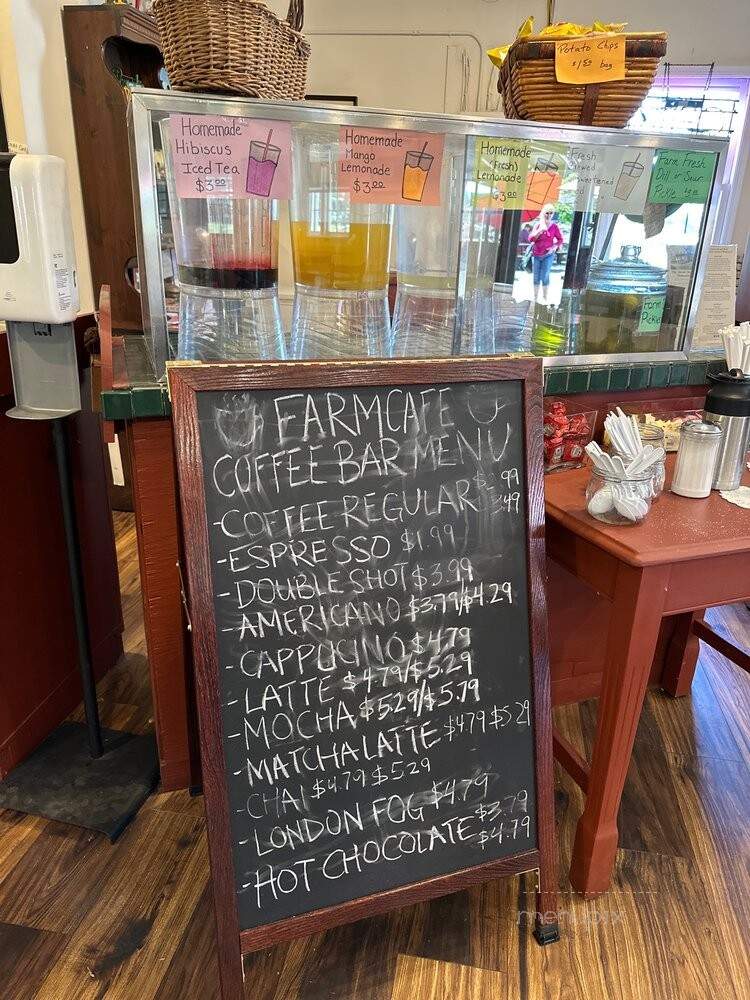 Potato Chips
$1.50 bag
Homemade
Hibiscus
Iced Tea
$3.00
Homemade
Mango
Lemonade
$3.00
Homemade
"Fresh"
Lemonade
$3.00
Fresh
Farm Fresh
Dill or Sour
Pickle
Farm
Pickle
FARMCAFE
COFFEE BAR MENU
-COFFEE REGULAR
-ESPRESSO $1.99
-DOUBLE SHOT $3.99
-AMERICANO $3.79/$4.29
-CAPPUCINO $4.79
-LATTE $4.79/$5.29
-MOCHA $5.29/$5.79
-MATCHA LATTE $4.79 $5.29
-CHAI $4.79 $5.29
-LONDON FOG $4.79
-HOT CHOCOLATE $3.79
$4.79
menupix